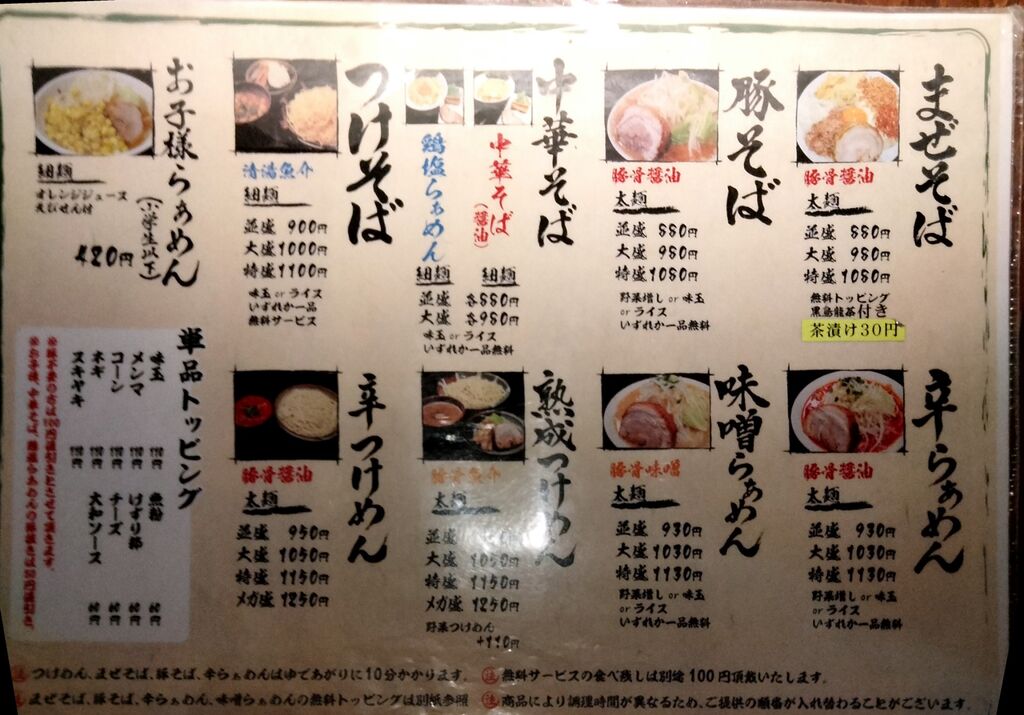 まぜそば
豚骨醤油
太麺
並盛 880円
大盛 980円
特盛 1080円
無料トッピング
黒烏龍茶付き
茶漬け30円
豚そば
豚骨醤油
太麺
並盛 880円
大盛 980円
特盛 1080円
野菜増し or 味玉
or ライス
いずれか一品無料
中華そば
中華そば
(醤油)
鶏塩らぁめん
細麺 細麺
並盛 各880円
大盛 各980円
味玉 or ライス
いずれか一品無料
つけそば
清湯魚介
細麺
並盛 900円
大盛 1000円
特盛 1100円
味玉 or ライス
いずれか一品
無料サービス
お子様らぁめん
(小学生以下)
細麺
オレンジジュース
えびせん付
420円
辛らぁめん
豚骨醤油
太麺
並盛 930円
大盛 1030円
特盛 1130円
野菜増し or 味玉
or ライス
いずれか一品無料
味噌らぁめん
豚骨味噌
太麺
並盛 930円
大盛 1030円
特盛 1130円
野菜増し or 味玉
or ライス
いずれか一品無料
熟成つけめん
豚骨魚介
太麺
並盛
大盛 1050円
特盛 1150円
メガ盛 1250円
野菜つけめん
+110円
辛つけめん
豚骨醤油
太麺
並盛 950円
大盛 1050円
特盛 1150円
メガ盛 1250円
単品トッピング
味玉
メンマ
コーン
ネギ
スキヤキ
魚粉
けずり節
チーズ
大和ソース
つけめん、まぜそば、豚そば、辛らぁめんはゆであがりに10分かかります。
まぜそば、豚そば、辛らぁめん、味噌らぁめんの無料トッピングは別紙参照
無料サービスの食べ残しは別途100円頂戴いたします。
商品により調理時間が異なるため、ご提供の順番が入れ替わることがございます。